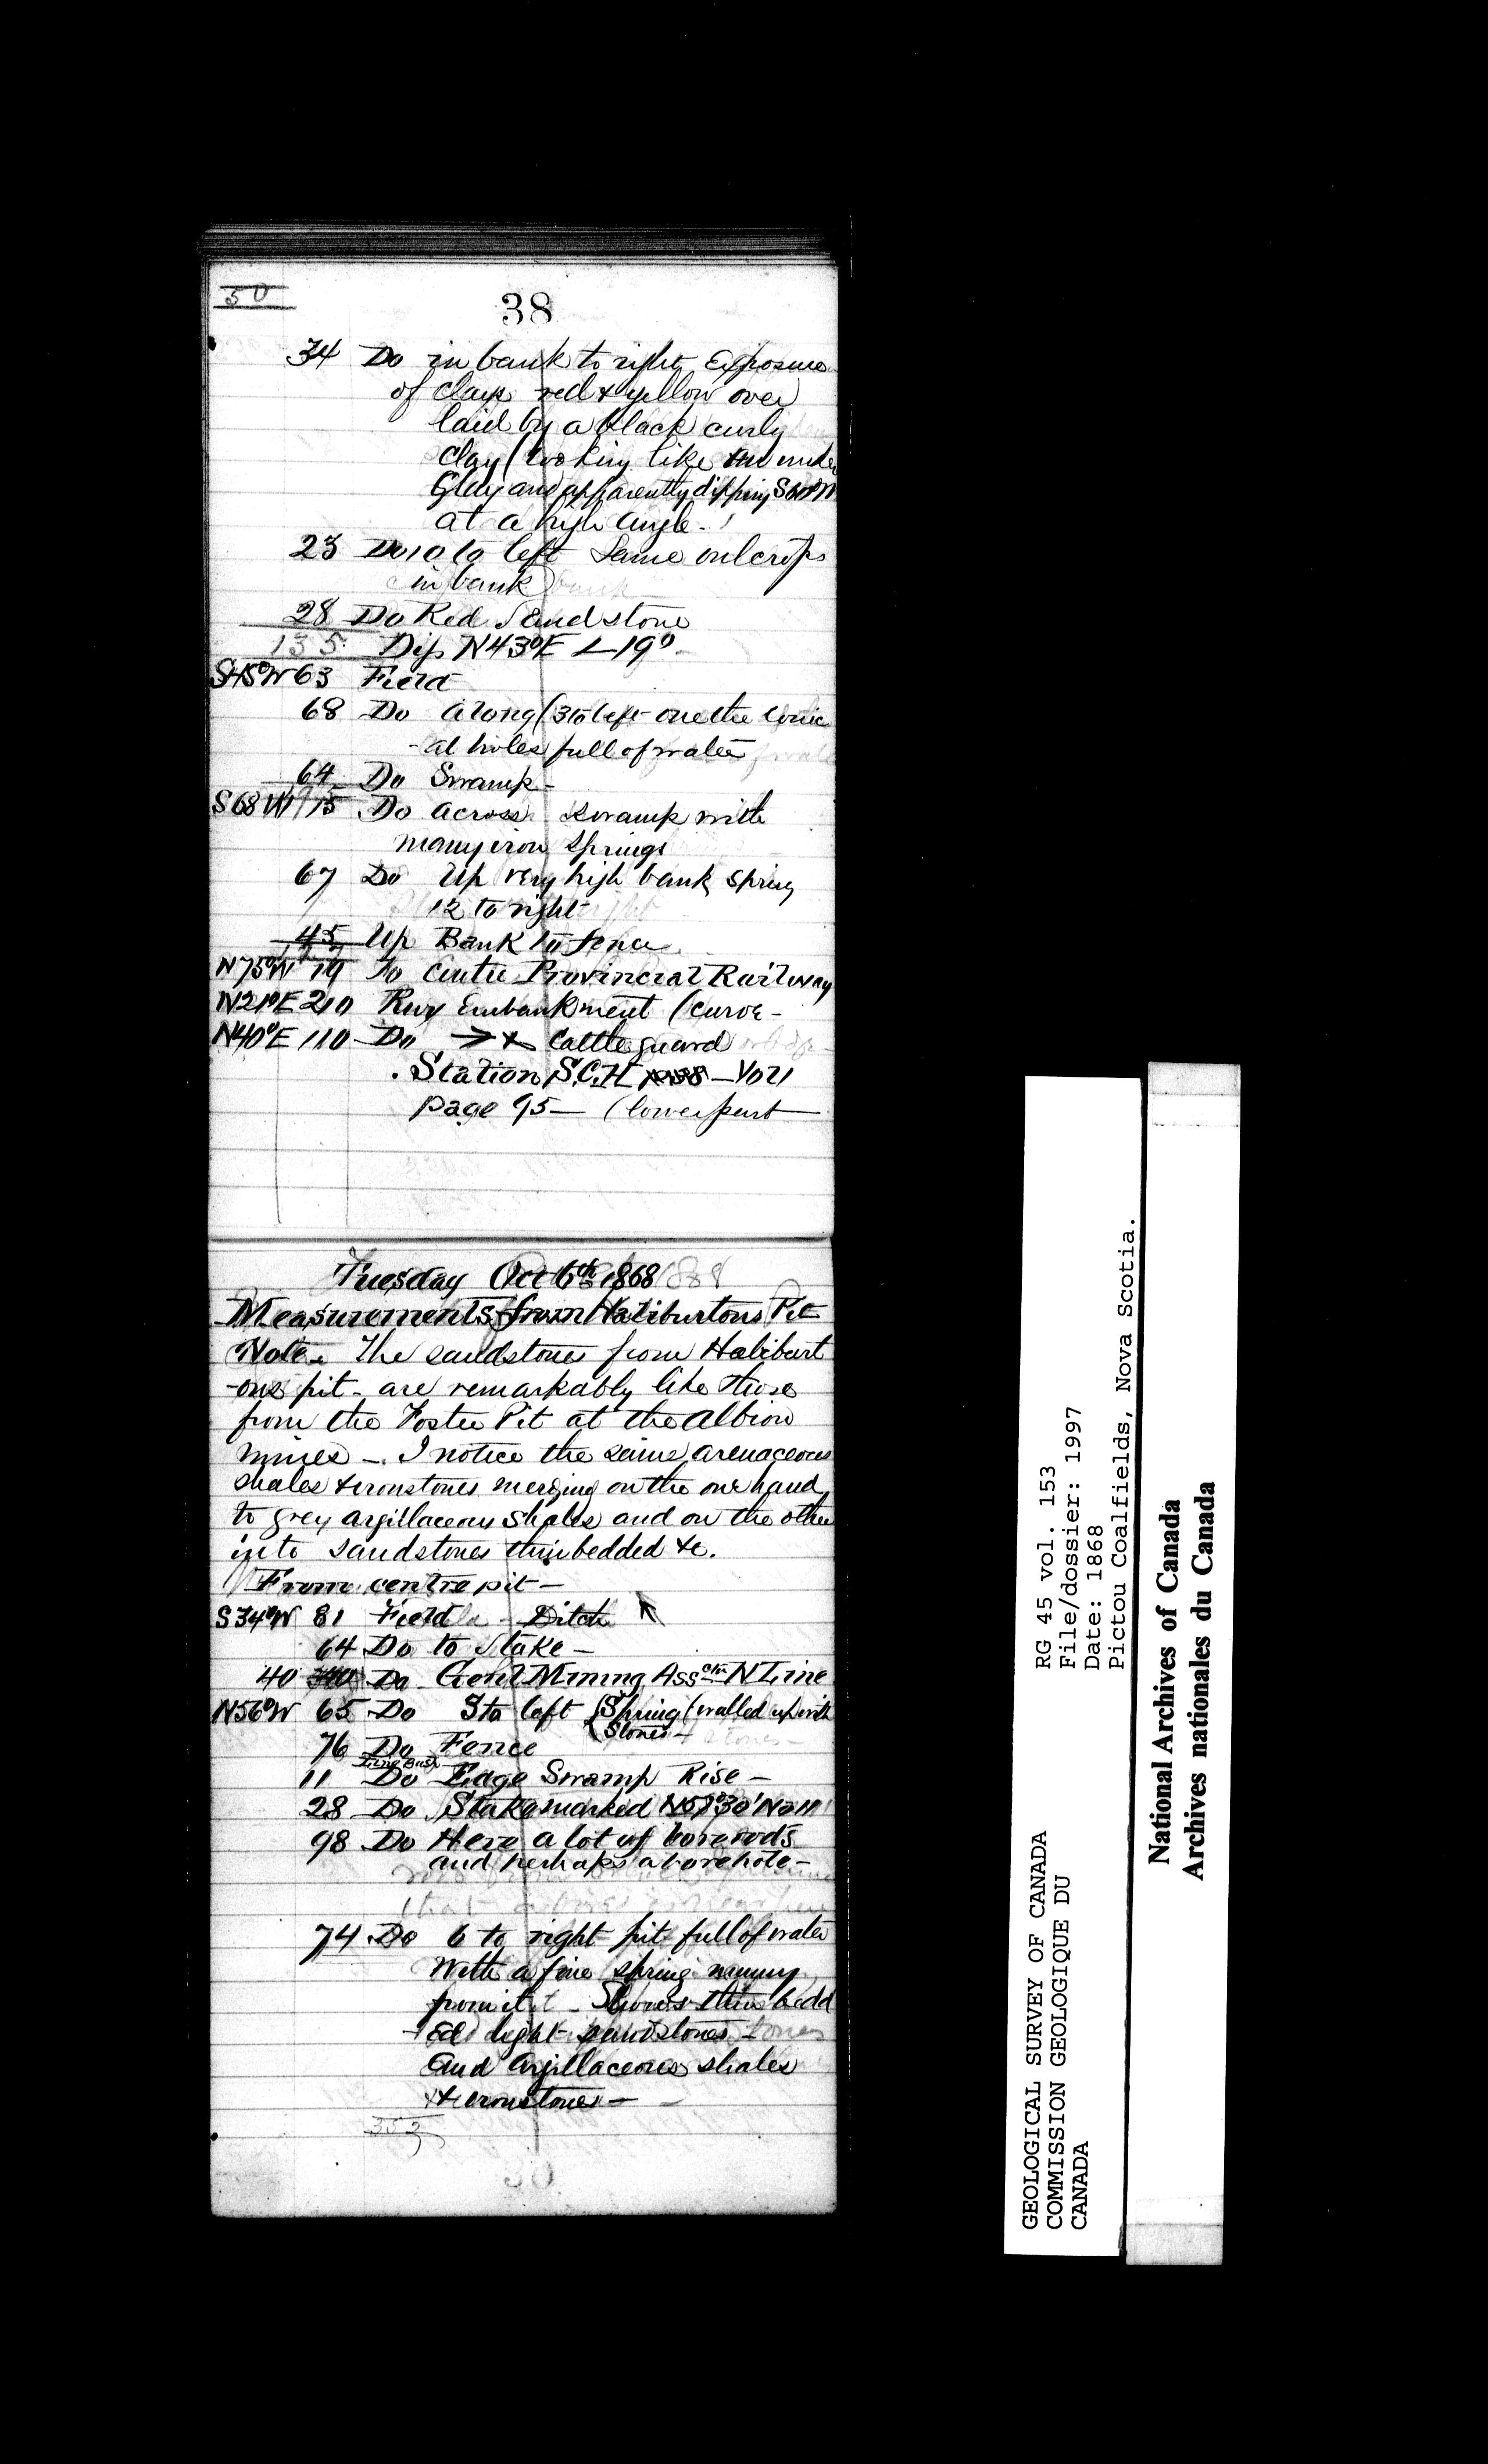 50
38
34 Do in bank to right Exposure
of clays red & yellow over
laid by a black curly
clay (looking like an under
Clay and apparently dipping
at a high angle.
23 Do 10 to left Same outcrops
in bank
28 Do Red Sandstone
135 Dip N43°E ∠19°
S45°W 63 Field
68 Do along (3 to left one the conic
-al holes full of water
64 Do Swamp-
S68W 75 Do across swamp with
many iron springs
67 Do Up very high bank spring
12 to right
45 Up Bank to fence
N75°W 19 to Centre Provincial Railway
N21°E 210 Rwy Embankment (curve-
N40°E 110 Do Cattle guard
Station S.C.H — Vol 1
page 95— (lower part
Tuesday Oct 6th 1868
Measurements from Haliburtons Pit
Note. The sandstones from Haliburt
-ons pit - are remarkably like those
from the Foster Pit at the Albion
mines -. I notice the same arenaceous
shales & ironstones merging on the one hand
to grey argillaceous shales and on the other
into sandstones thin bedded &c.
From centre pit—
S34°W 81 Field - Ditch
64 Do to Stake—
40 Do Genl Mining Assctn N Line
N56°W 65 Do 5 to left {Spring (walled up with
Stones-
76 Do Fence
11 Do Edge Swamp Rise—
28 Do Stake marked
98 Do Here a lot of bore rods
and perhaps a borehole—
74 Do 6 to right pit full of water
With a fine spring running
from it - Shows thin bedd
-ed light sandstones -
and argillaceous shales
& ironstones —
353
GEOLOGICAL SURVEY OF CANADA
COMMISSION GEOLOGIQUE DU
CANADA
RG 45 vol. 153
File/dossier: 1997
Date: 1868
Pictou Coalfields, Nova Scotia.
National Archives of Canada
Archives nationales du Canada